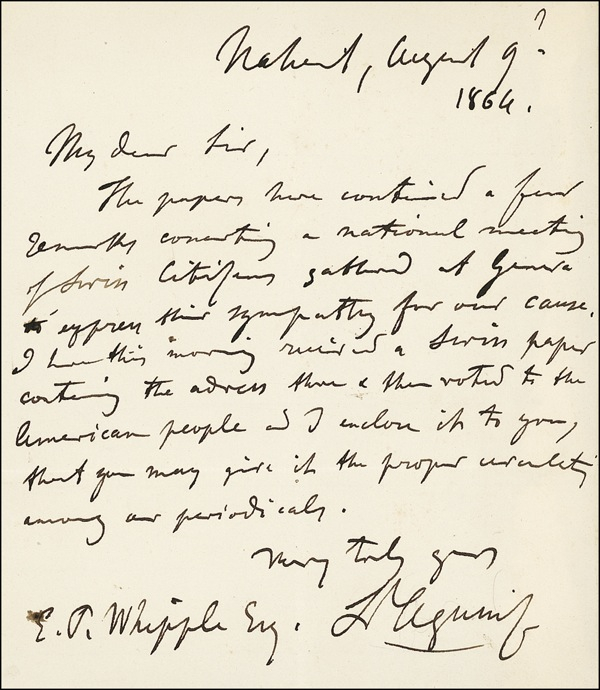 Nahant, August 9?
1864.
My dear Sir,
The papers have contained a few
remarks concerning a national meeting
of Swiss Citizens gathered at Geneva
to express their sympathy for our cause.
I have this morning received a Swiss paper
containing the adress there & then voted to the
American people and I enclose it to you,
that you may give it the proper circulation
among our periodicals.
Very truly yours
E. P. Whipple Esq. Ls Agassiz